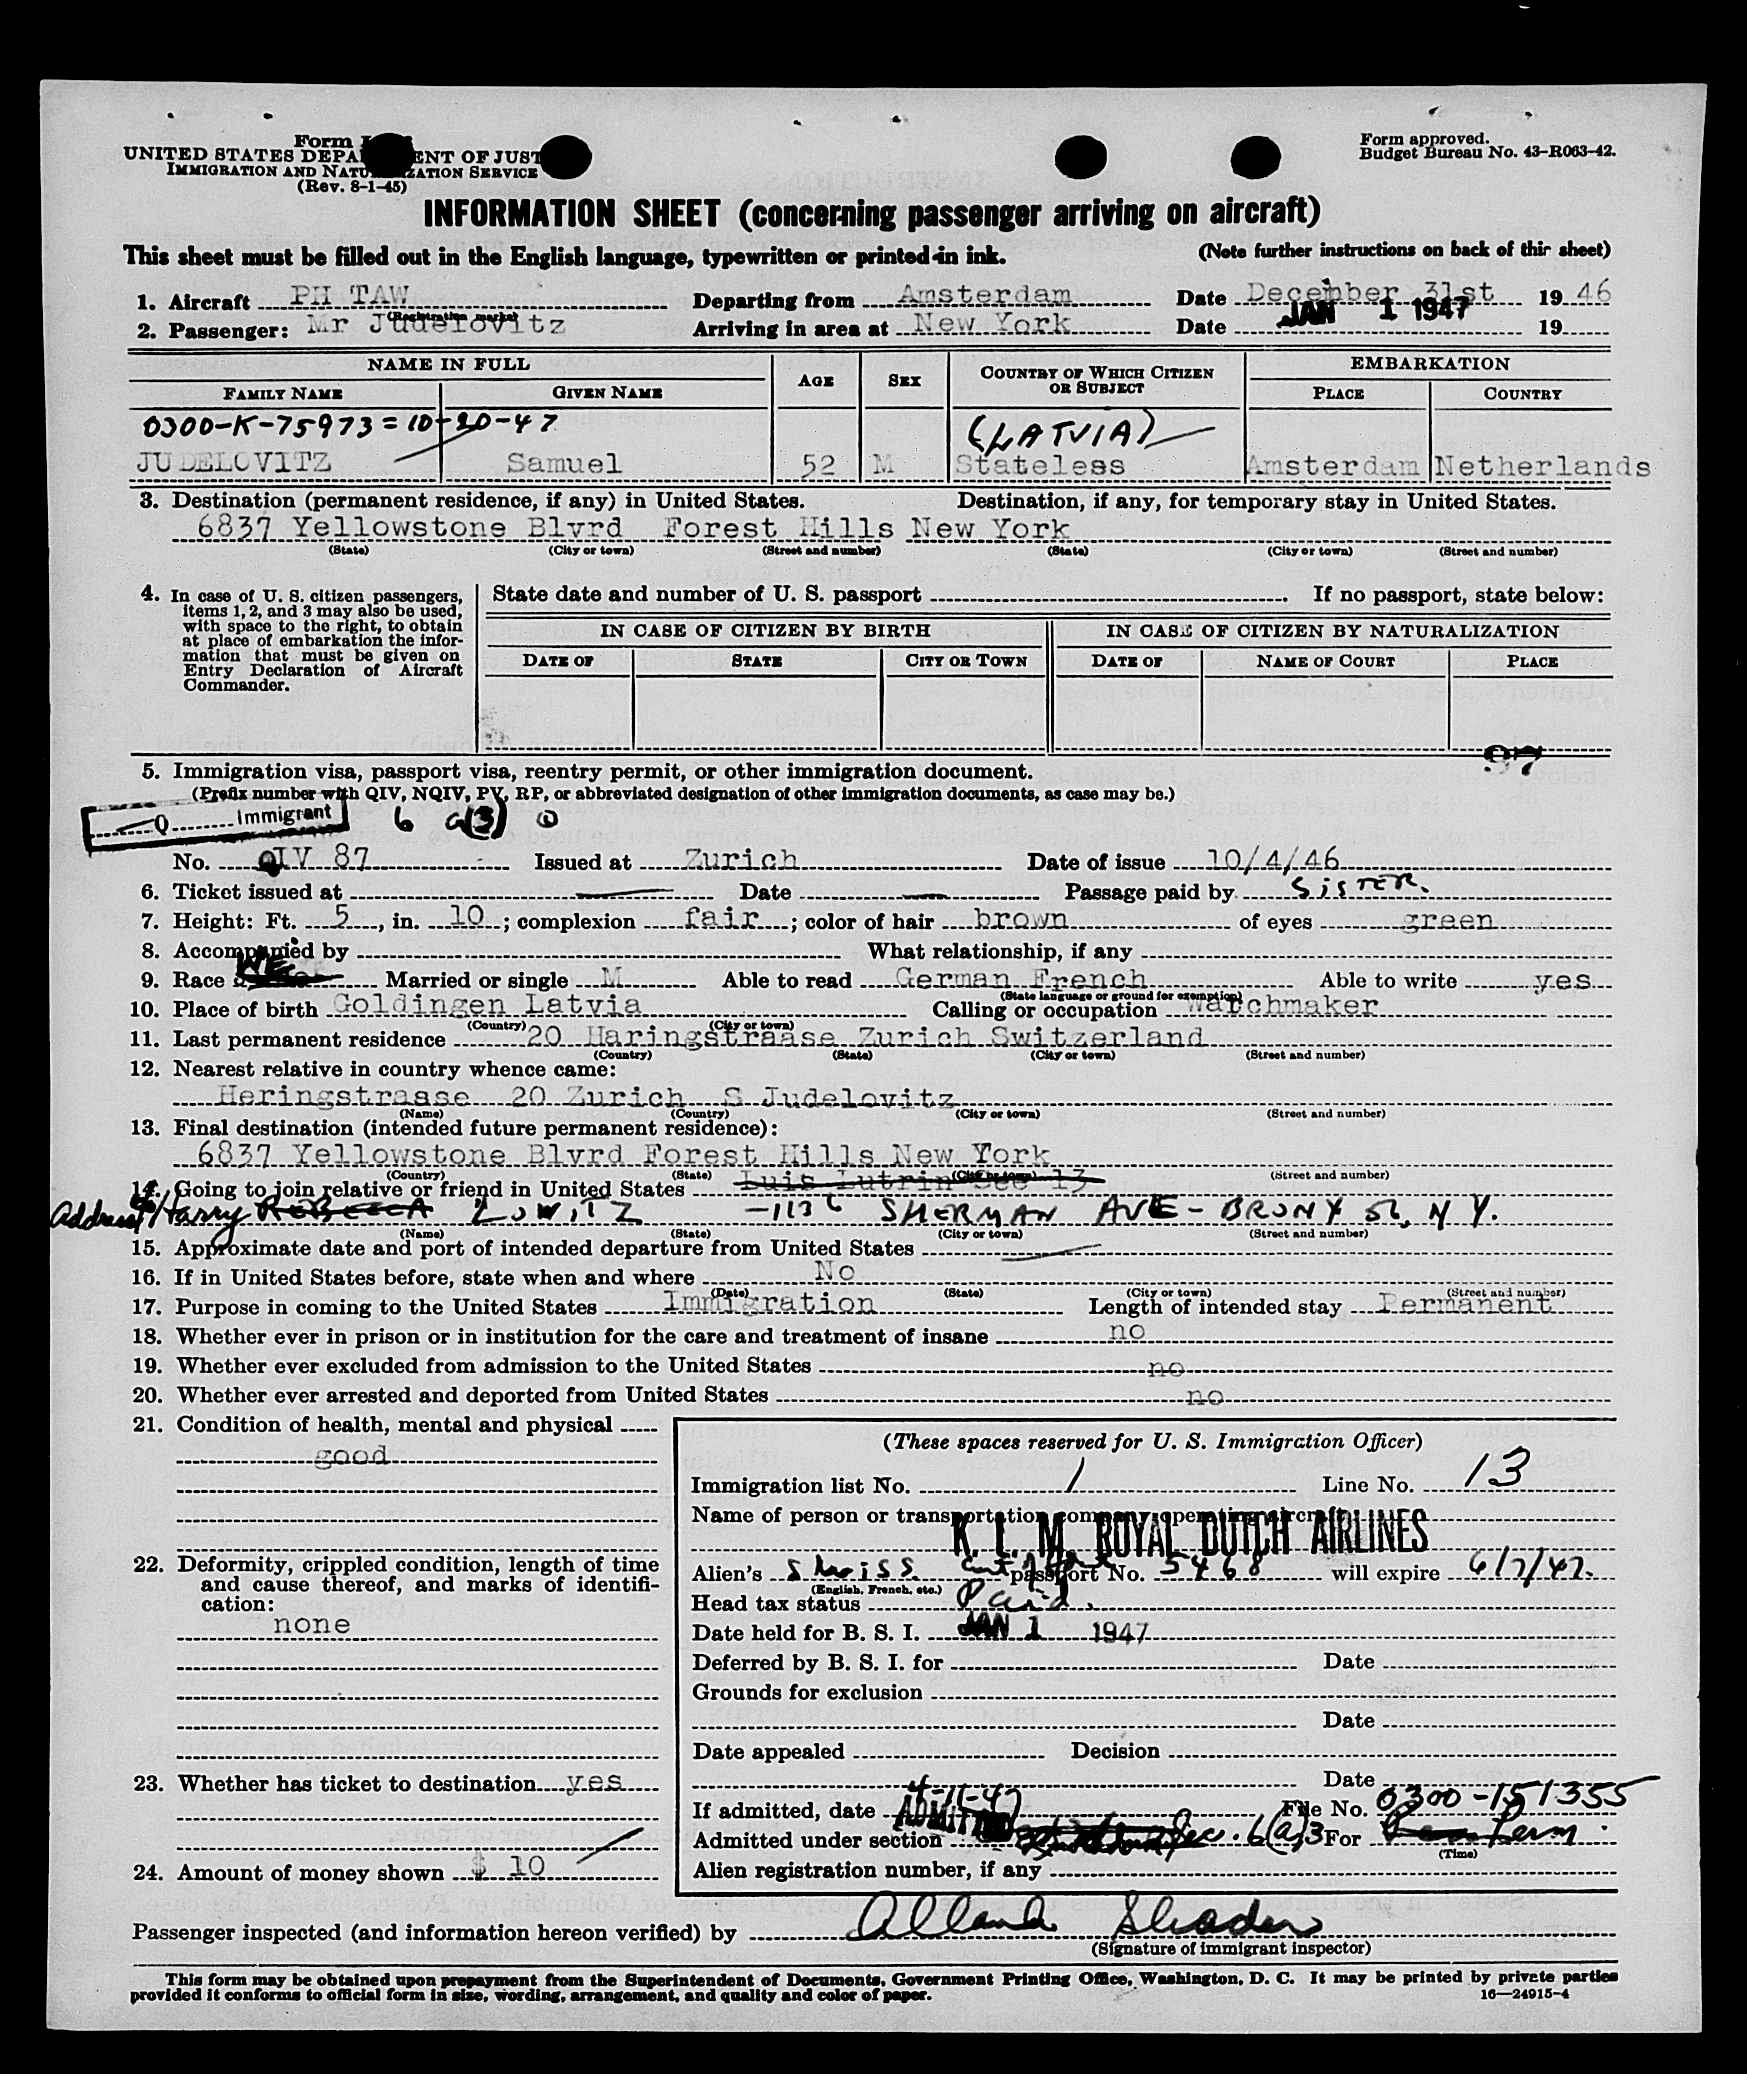 Form
UNITED STATES DEPA ENT OF JUST
IMMIGRATION AND NATU ZATION SERVICE
(Rev. 8-1-45)
Form approved.
Budget Bureau No. 43-R063-42.
INFORMATION SHEET (concerning passenger arriving on aircraft)
This sheet must be filled out in the English language, typewritten or printed in ink. (Note further instructions on back of this sheet)
1. Aircraft PH TAW Departing from Amsterdam Date December 31st 19 46
(Registration marks)
2. Passenger: Mr Judelovitz Arriving in area at New York Date JAN 1 1947 19
NAME IN FULL AGE SEX COUNTRY OF WHICH CITIZEN OR SUBJECT EMBARKATION
FAMILY NAME GIVEN NAME PLACE COUNTRY
0300-K-75973=10-20-47 (LATVIA)
JUDELOVITZ Samuel 52 M Stateless Amsterdam Netherlands
3. Destination (permanent residence, if any) in United States. Destination, if any, for temporary stay in United States.
6837 Yellowstone Blvrd Forest Hills New York
(State) (City or town) (Street and number) (State) (City or town) (Street and number)
4. In case of U. S. citizen passengers, items 1, 2, and 3 may also be used, with space to the right, to obtain at place of embarkation the information that must be given on Entry Declaration of Aircraft Commander.
State date and number of U. S. passport If no passport, state below:
IN CASE OF CITIZEN BY BIRTH IN CASE OF CITIZEN BY NATURALIZATION
DATE OF STATE CITY OR TOWN DATE OF NAME OF COURT PLACE
97
5. Immigration visa, passport visa, reentry permit, or other immigration document.
(Prefix number with QIV, NQIV, PV, RP, or abbreviated designation of other immigration documents, as case may be.)
Q Immigrant 6 a(3) 0
No. QIV 87 Issued at Zurich Date of issue 10/4/46
6. Ticket issued at Date Passage paid by SISTER.
7. Height: Ft. 5, in. 10; complexion fair; color of hair brown of eyes green
8. Accompanied by What relationship, if any
9. Race Married or single M Able to read German French Able to write yes
(State language or ground for exemption)
10. Place of birth Goldingen Latvia Calling or occupation Watchmaker
(Country) (City or town)
11. Last permanent residence 20 Haringstraase Zurich Switzerland
(Country) (State) (City or town) (Street and number)
12. Nearest relative in country whence came:
Heringstrasse 20 Zurich S Judelovitz
(Name) (Country) (City or town) (Street and number)
13. Final destination (intended future permanent residence):
6837 Yellowstone Blvrd Forest Hills New York
(Country) (State) (City or town) (Street and number)
14. Going to join relative or friend in United States Luis Lutrin See 13
Address c/o Harry REBECCA LOWITZ -1136 SHERMAN AVE - BRONX 56, N Y.
(Name) (State) (City or town) (Street and number)
15. Approximate date and port of intended departure from United States
16. If in United States before, state when and where No
(Date) (State) (City or town) (Street and number)
17. Purpose in coming to the United States Immigration Length of intended stay Permanent
18. Whether ever in prison or in institution for the care and treatment of insane no
19. Whether ever excluded from admission to the United States no
20. Whether ever arrested and deported from United States no
21. Condition of health, mental and physical
good
22. Deformity, crippled condition, length of time and cause thereof, and marks of identification:
none
23. Whether has ticket to destination yes
24. Amount of money shown $ 10
(These spaces reserved for U. S. Immigration Officer)
Immigration list No. 1 Line No. 13
Name of person or transportation company operating aircraft
K. L. M. ROYAL DUTCH AIRLINES
Alien's Swiss passport No. 5468 will expire 6/7/47.
(English, French, etc.)
Head tax status Paid.
Date held for B. S. I. JAN 1 1947
Deferred by B. S. I. for Date
Grounds for exclusion
Date
Date appealed Decision
Date
If admitted, date 4-11-47 File No. 0300-151355
ADMITTED
Admitted under section Sec. 6(a)3 For Perm.
(Time)
Alien registration number, if any
Passenger inspected (and information hereon verified) by
(Signature of immigrant inspector)
This form may be obtained upon prepayment from the Superintendent of Documents, Government Printing Office, Washington, D. C. It may be printed by private parties
provided it conforms to official form in size, wording, arrangement, and quality and color of paper.
16—24915-4